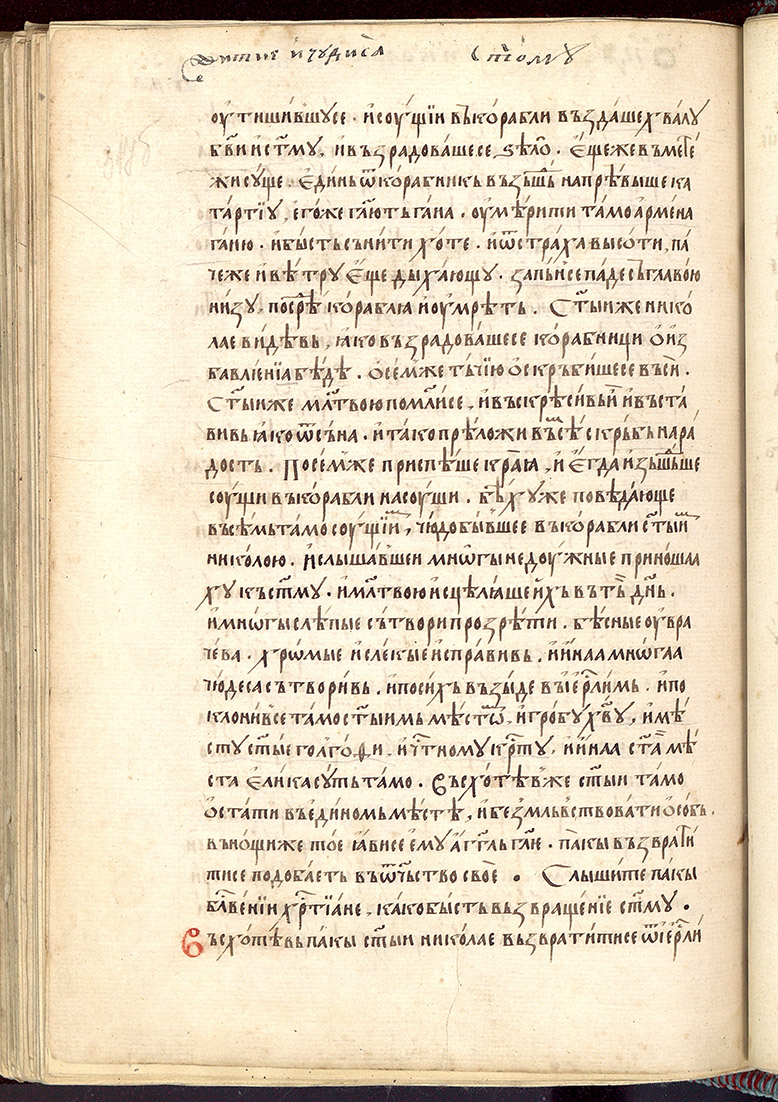 Житие и чудиса с͠птому
оутишив̾шусе · и соущїи въ корабли въздаше хвалу
бг҃ви и ст҃му , и възрадоваше се, ѕѣло҇ . Еще же въ мете
жи суще . Единь ѿ корабникь възьш̾ь на прѣвыше ка
тартїу , его же гл҃ють гана . оумѣрити тамо армена
ганю . и бысть сънити хоте . и ѿ страха высоти , па
че же и вѣтру еще дыхающу . запьи се паде съ главою
низу , посрѣ корабла и оумрѣть . Ст҃ыи же нико
лае видѣвь , ꙗко възрадоваше се корабници о из
бавленїа бѣдѣ . о сем же тьчїю оскръбише се вьси .
Ст҃ыи же мл҃твою помл҃и се , и въскрѣси вый и въста
вивь ꙗко ѿ сьна . и тако прѣложи въсѣ скрьбь на ра
дость . По сем же приспѣше краю , и егда изьш̾ше
соущи въ корабли на соуши . бѣху же повѣдающе
въсѣмь тамо соущїим , чюдо бывшее въ корабли ст҃ым
николою . и слышав̾шеи мнѡгы недоужные приношаа
ху къ ст҃му . и мл҃твою исцѣлꙗше ихь вь тъ дн҃ь .
и мнѡгы слѣпые сътвори прозрѣти . бѣсные оувра
чева . хрѡмые и слекые исправивь . и инаа мнѡгаа
чюдеса сътворивь . и по сихь възыде въ іер҇лимь . и по
клонив̾ се тамо ст҃ыимь мѣстѡм , и гробу хв҃у , и мѣ
сту ст҃ые голгофи . и ч҇тному кр҇ту , и инаа ст҃аа мѣ
ста елика суть тамо . Въсхотѣв̾ же ст҃ыи тамо
остати въ единомь мѣстѣ , и безмльвствовати особь .
въ нощи же тое ꙗви се ему агг҃ль гл҃ю . пакы възврати
ти се подобаеть въ ѿч҇ьство свое · Слышите пакы
бл҃вении хр҇тїане , како бысть възвращенїе ст҃му .
Въсхотѣвь пакы ст҃ыи николае възвратити се ѿ іер҇ли